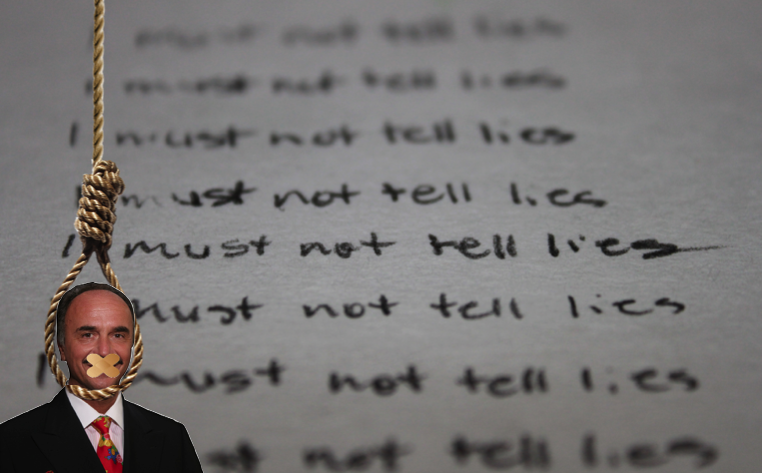 must not tell lies
I must not tell lies
I must not tell lies
I must not tell lies
I must not tell lies
must not tell lies
I must not tell lies
must not tell lies